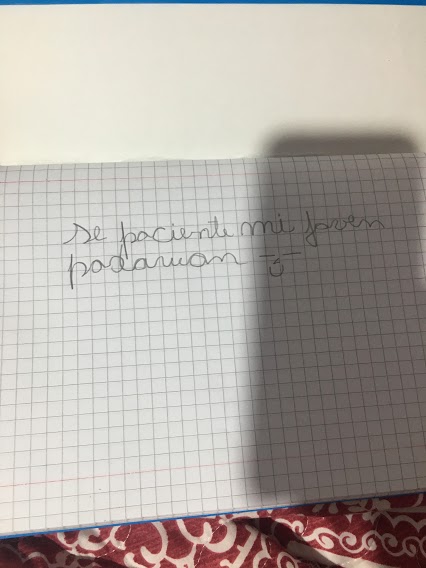 Se paciente mi joven
padawan -_-